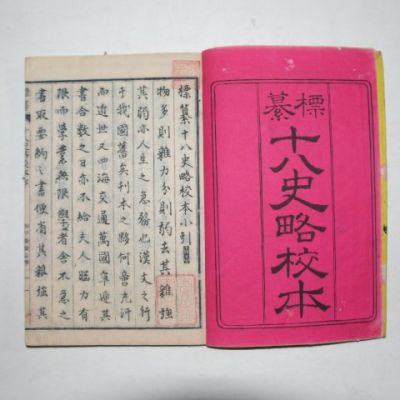 標纂
十八史略校本
標纂十八史略校本小引
物多則雜力分則弱去其雜強
其弱亦人生之急務也漢文之行
于我國舊矣刊本之夥何啻充汗
而世又四海交通萬國其
書合數之日亦不給夫人力有
限而學業無限學者舍不急之
書取要約之書省其雜強其